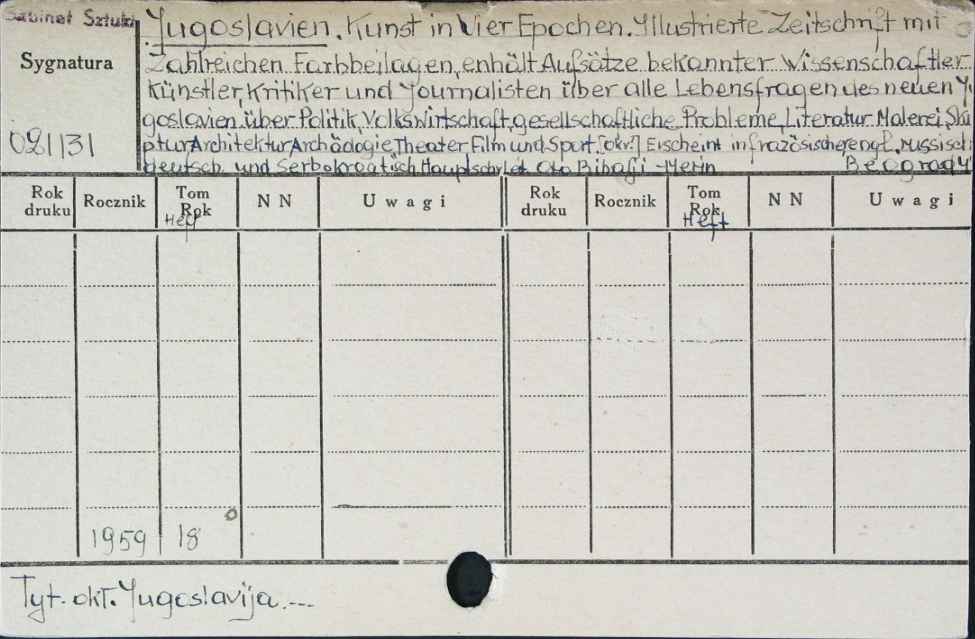 Gabinet Sztuki
Sygnatura
081131
Yugoslavien. Kunst in Vier Epochen. Yllustrierte Zeitschrift mit
Zahlreichen Farbbeilagen, enhält Aufsätze bekannter Wissenschaftler
Künstler, Kritiker und Yournalisten über alle Lebensfragen des neuen Yu
goslavien über Politik, Volkswirtschaft, gesellschaftliche Probleme, Literatur Malerei, Skul
ptur Architektur Archäologie Theater Film und Sport. [okr.] Erscheint in frazösischer engl, russisch
deutsch und Serbokroatisch Oto Bihalji-Merin Beograd
Rok druku Rocznik Tom Rok Heft N N Uwagi Rok druku Rocznik Tom Rok Heft N N Uwagi
1959 18
Tyt. okł. Yugoslavija. ---